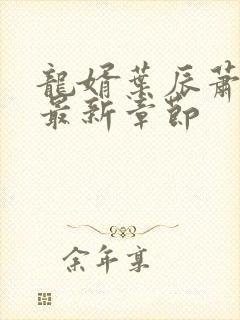 龍婿葉辰蕭
最新章節
余年京